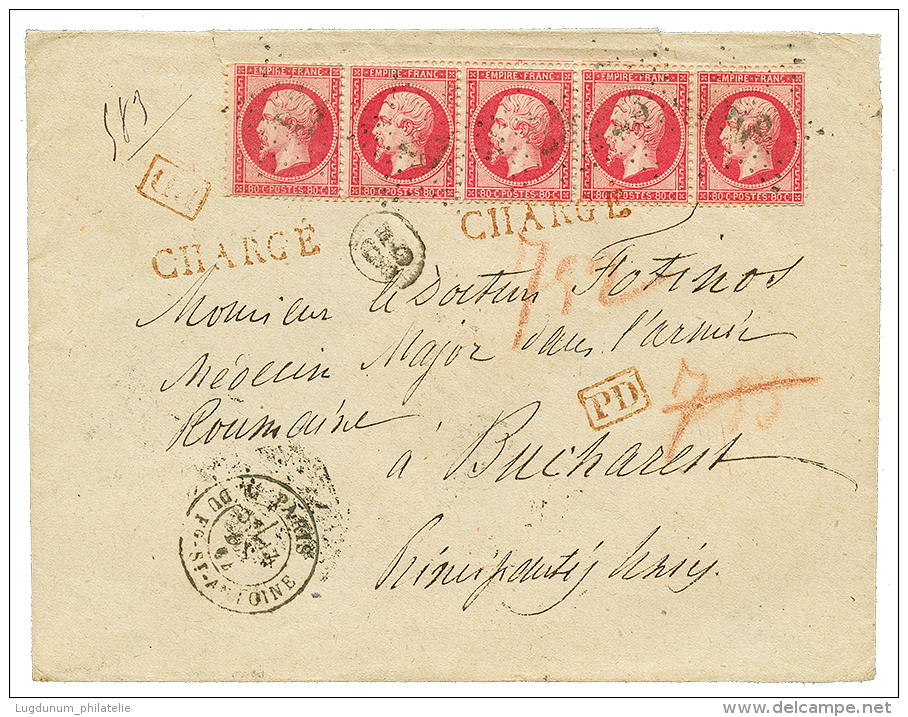 583
EMPIRE FRANC EMPIRE FRANC EMPIRE FRANC EMPIRE FRANC EMPIRE FRANC
80 C POSTES 80 C 80 C POSTES 80 C 80 C POSTES 80 C 80 C POSTES 80 C 80 C POSTES 80 C
CHARGÉ
CHARGÉ
Monsieur le Docteur Fotinos
Médecin Major dans l'armée
Roumaine
PD
à Bucharest
Principautés Unies.
PARIS
DU FG-ST-ANTOINE
Lugdunum_philatelie
www.delcampe.net